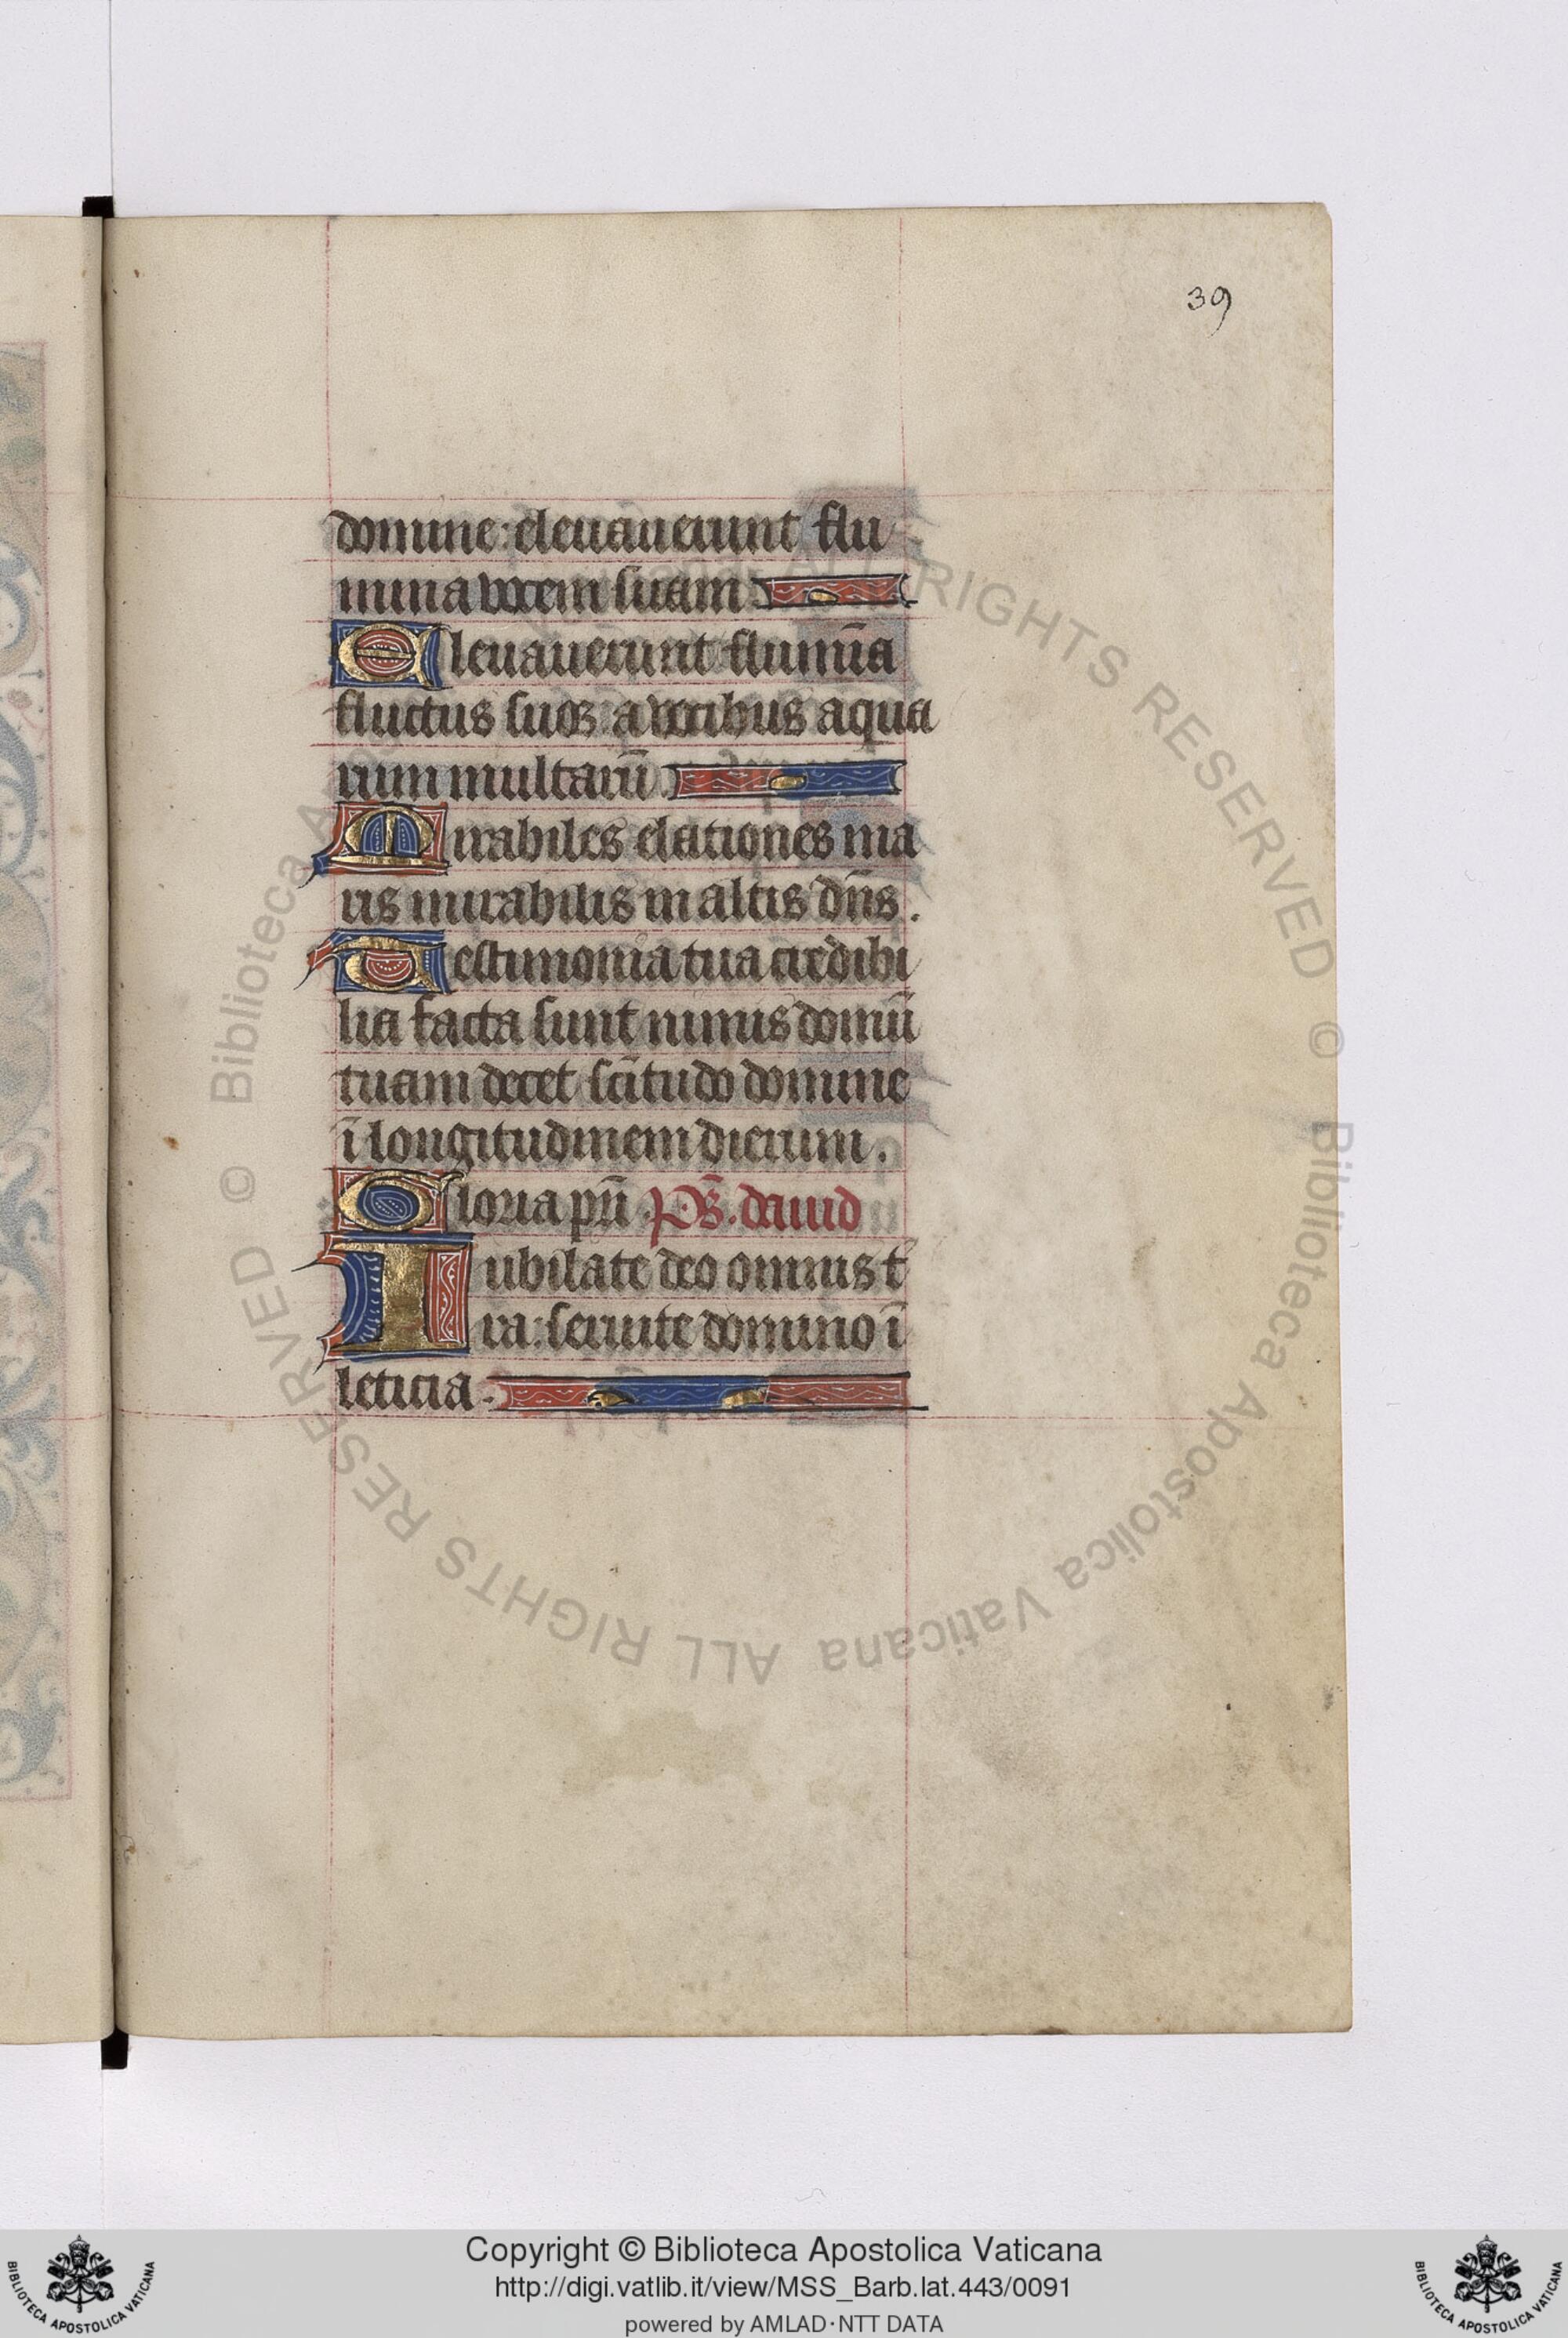 39
domine: eleuauerunt flu
mina vocem suam.
Eleuauerunt flumīa
fluctus suoꝝ: a vocibus aqua
rum multarū
Mirabiles elationes ma
ris mirabilis in altis dn̄s.
Testimonia tua credibi
lia facta sunt nimis domū
tuam decet sc̄itudo domine
ī longitudinem dierum.
Gloria pr̄i. Ps̄. dauid
Iubilate deo omnis t̄
ra: seruite domino ī
leticia.
© Biblioteca Apostolica Vaticana ALL RIGHTS RESERVED © Biblioteca Apostolica Vaticana ALL RIGHTS RESERVED
Copyright © Biblioteca Apostolica Vaticana
http://digi.vatlib.it/view/MSS_Barb.lat.443/0091
powered by AMLAD·NTT DATA
BIBLIOTECA APOSTOLICA VATICANA
BIBLIOTECA APOSTOLICA VATICANA